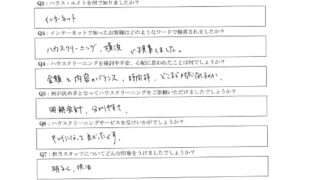 Q2：ハウス・エイトを何で知りましたか？
インターネット
Q3：インターネットで知ったお客様はどのようなワードで検索されましたか？
ハウスクリーニング、横浜 で検索しました。
Q4：ハウスクリーニングを検討中不安、心配に思われたことは何でしょうか？
金額と内容がバランス、時間、どこまできれいになるか。
Q5：何が決め手となってハウスクリーニングをご依頼いただけましたでしょうか？
明朗会計、分かりやすさ。
Q6：ハウスクリーニングサービスを受けいかがでしょうか？
きれいになって良かったです。
Q7：担当スタッフについてどんな印象をうけましたでしょうか？
明るく、快活